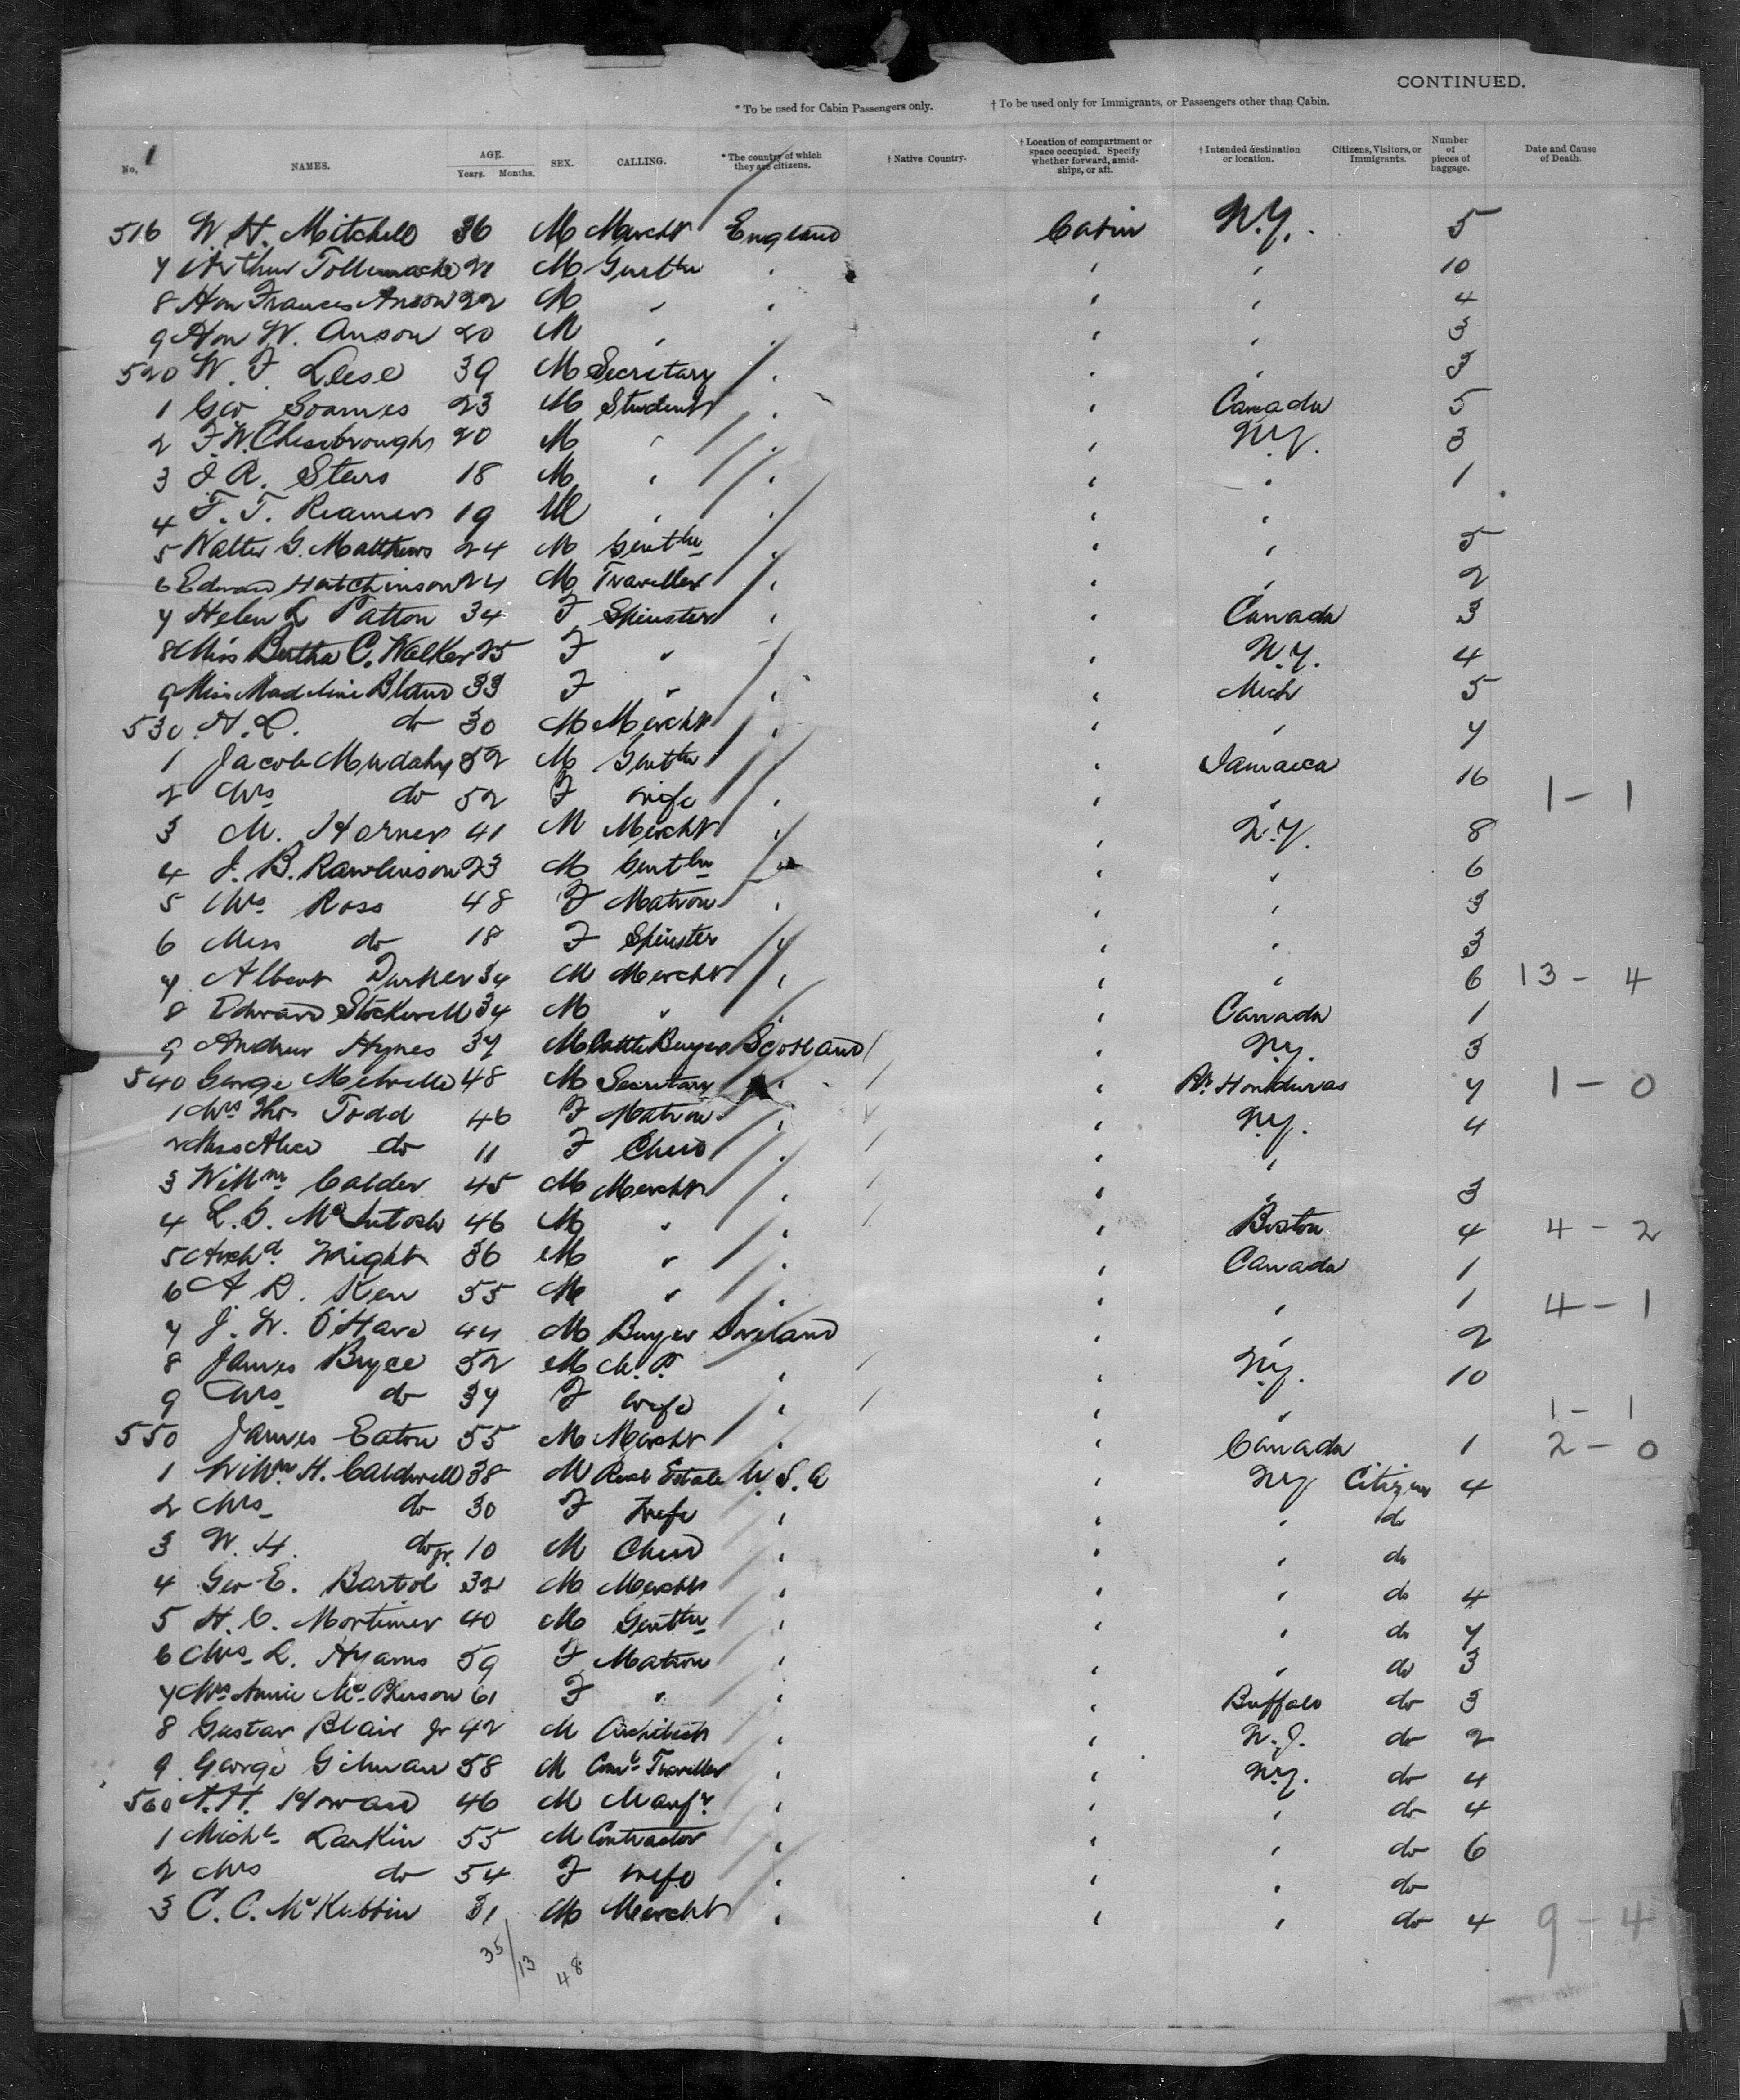 CONTINUED.
* To be used for Cabin Passengers only. † To be used only for Immigrants, or Passengers other than Cabin.
No. 1 NAMES. AGE. Years. Months. SEX. CALLING. * The country of which they are citizens. † Native Country. † Location of compartment or space occupied. Specify whether forward, amidships, or aft. † Intended destination or location. Citizens, Visitors, or Immigrants. Number of pieces of baggage. Date and Cause of Death.
516 W. H. Mitchell 36 M Mercht England Cabin N.Y. 5
7 Arthur Tollemache 21 M Gentln 10
8 Hon Frances Anson 22 M " 4
9 Hon W. Anson 20 M " 3
520 W. F. Leese 39 M Secretary 3
1 Geo Soames 23 M Student Canada 5
2 F. W. Chesebrough 20 M " N.Y. 3
3 J. R. Stars 18 M " " 1
4 F. T. Reamer 19 M " "
5 Walter G. Matthews 24 M Gentln " 5
6 Edward Hutchinson 24 M Traveller " 2
7 Helen L Patton 34 F Spinster Canada 3
8 Miss Bertha C. Walker 25 F " N.Y. 4
9 Miss Madeline Bland 33 F " Mich 5
530 H. L. do 30 M Mercht " 7
1 Jacob 52 M Gentln Jamaica 16
2 Mrs do 52 F wife " 1 - 1
3 M. Horner 41 M Mercht N.Y. 8
4 J. B. Rawlinson 23 M Gentln " 6
5 Mrs Ross 48 F Matron " 3
6 Miss do 18 F Spinster " 3
7 Albert 34 M Mercht " 6 13 - 4
8 Edward Stockwell 34 M " Canada 1
9 Andrew Hynes 37 M Cattle Buyer Scotland N.Y. 3
540 George Melville 48 M Secretary " Br. Honduras 7 1 - 0
1 Mrs Thos Todd 46 F Matron " N.Y. 4
2 Miss Alice do 11 F Child " "
3 Willm Calder 45 M Mercht " 3
4 L. G. McIntosh 46 M " Boston 4 4 - 2
5 Archd. Wright 36 M " Canada 1
6 A. R. Kerr 55 M " " 1 4 - 1
7 J. W. O'Hara 44 M Buyer Ireland " 2
8 James Bryce 52 M M.P. " N.Y. 10
9 Mrs do 37 F wife " " 1 - 1
550 James Eaton 55 M Mercht " Canada 1 2 - 0
1 Willm H. Caldwell 38 M Real Estate U.S.A N.Y Citizen 4
2 Mrs do 30 F Wife " " do
3 W. H. do jr. 10 M Child " " do
4 Geo E. Bartol 32 M Mercht " " do 4
5 H. C. Mortimer 40 M Gentln " " do 7
6 Mrs L. Hyams 59 F Matron " " do 3
7 Mrs Annie McPherson 61 F " " Buffalo do 3
8 Gustav Blair Jr 42 M Architect " N.J. do 2
9 George Gilman 58 M Coml. Traveller " N.Y. do 4
560 A. H. Howard 46 M Manfr. " " do 4
1 Michl. Larkin 55 M Contractor " " do 6
2 Mrs do 54 F wife " " do
3 C. C. McKubbin 31 M Mercht " " do 4 9 - 4
35/13 48